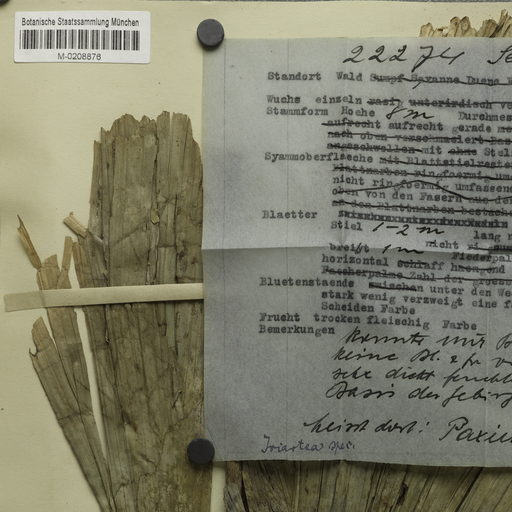 Botanische Staatssammlung München
M-0208876
22274 Se
Standort Wald Sumpf Savanne Duene
Wuchs einzeln rasig unterirdisch ve
Stammform Hoehe 8m Durchmes
aufrecht aufrecht gerade me
nach oben verschmaelert Bas
angeschwollen mit ohne Stel
Syammoberflaesche mit Blattstielreste
Blattnarben ringfoermig um
nicht ringfoermig umfassend
oben von den Fasern aus de
Blaetter
Stiel 1-2 m lang
breit 1m nicht Fiederpal
horizontal schlaff haengend
Faecherpalme Zahl der
Bluetenstaende zwischen unter den We
stark wenig verzweigt eine
Scheiden Farbe
Frucht trocken fleischig Farbe
Bemerkungen konnte nur
keine Bl. & fr
sehr dicht
Basis des
heisst dort: Paxiu
Iriartea spec.